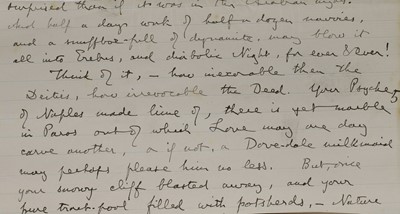 surprised than if it was in the Arabian nights.
And half a days work of half-a-dozen navvies,
and a snuffbox-full of dynamite, may blow it
all into Erebus, and diabolic Night, for ever & ever!
Think of it, – how inexorable than the
Deities, how irrevocable the Deed. Your Psyche
of Naples made lime of, there is yet marble
in Paros out of which Love may one day
carve another, or if not, a Dovedale milkmaid
may perhaps please him no less. But, once
your snowy cliff blasted away, and your
pure trout-pool filled with potsherds, – Nature